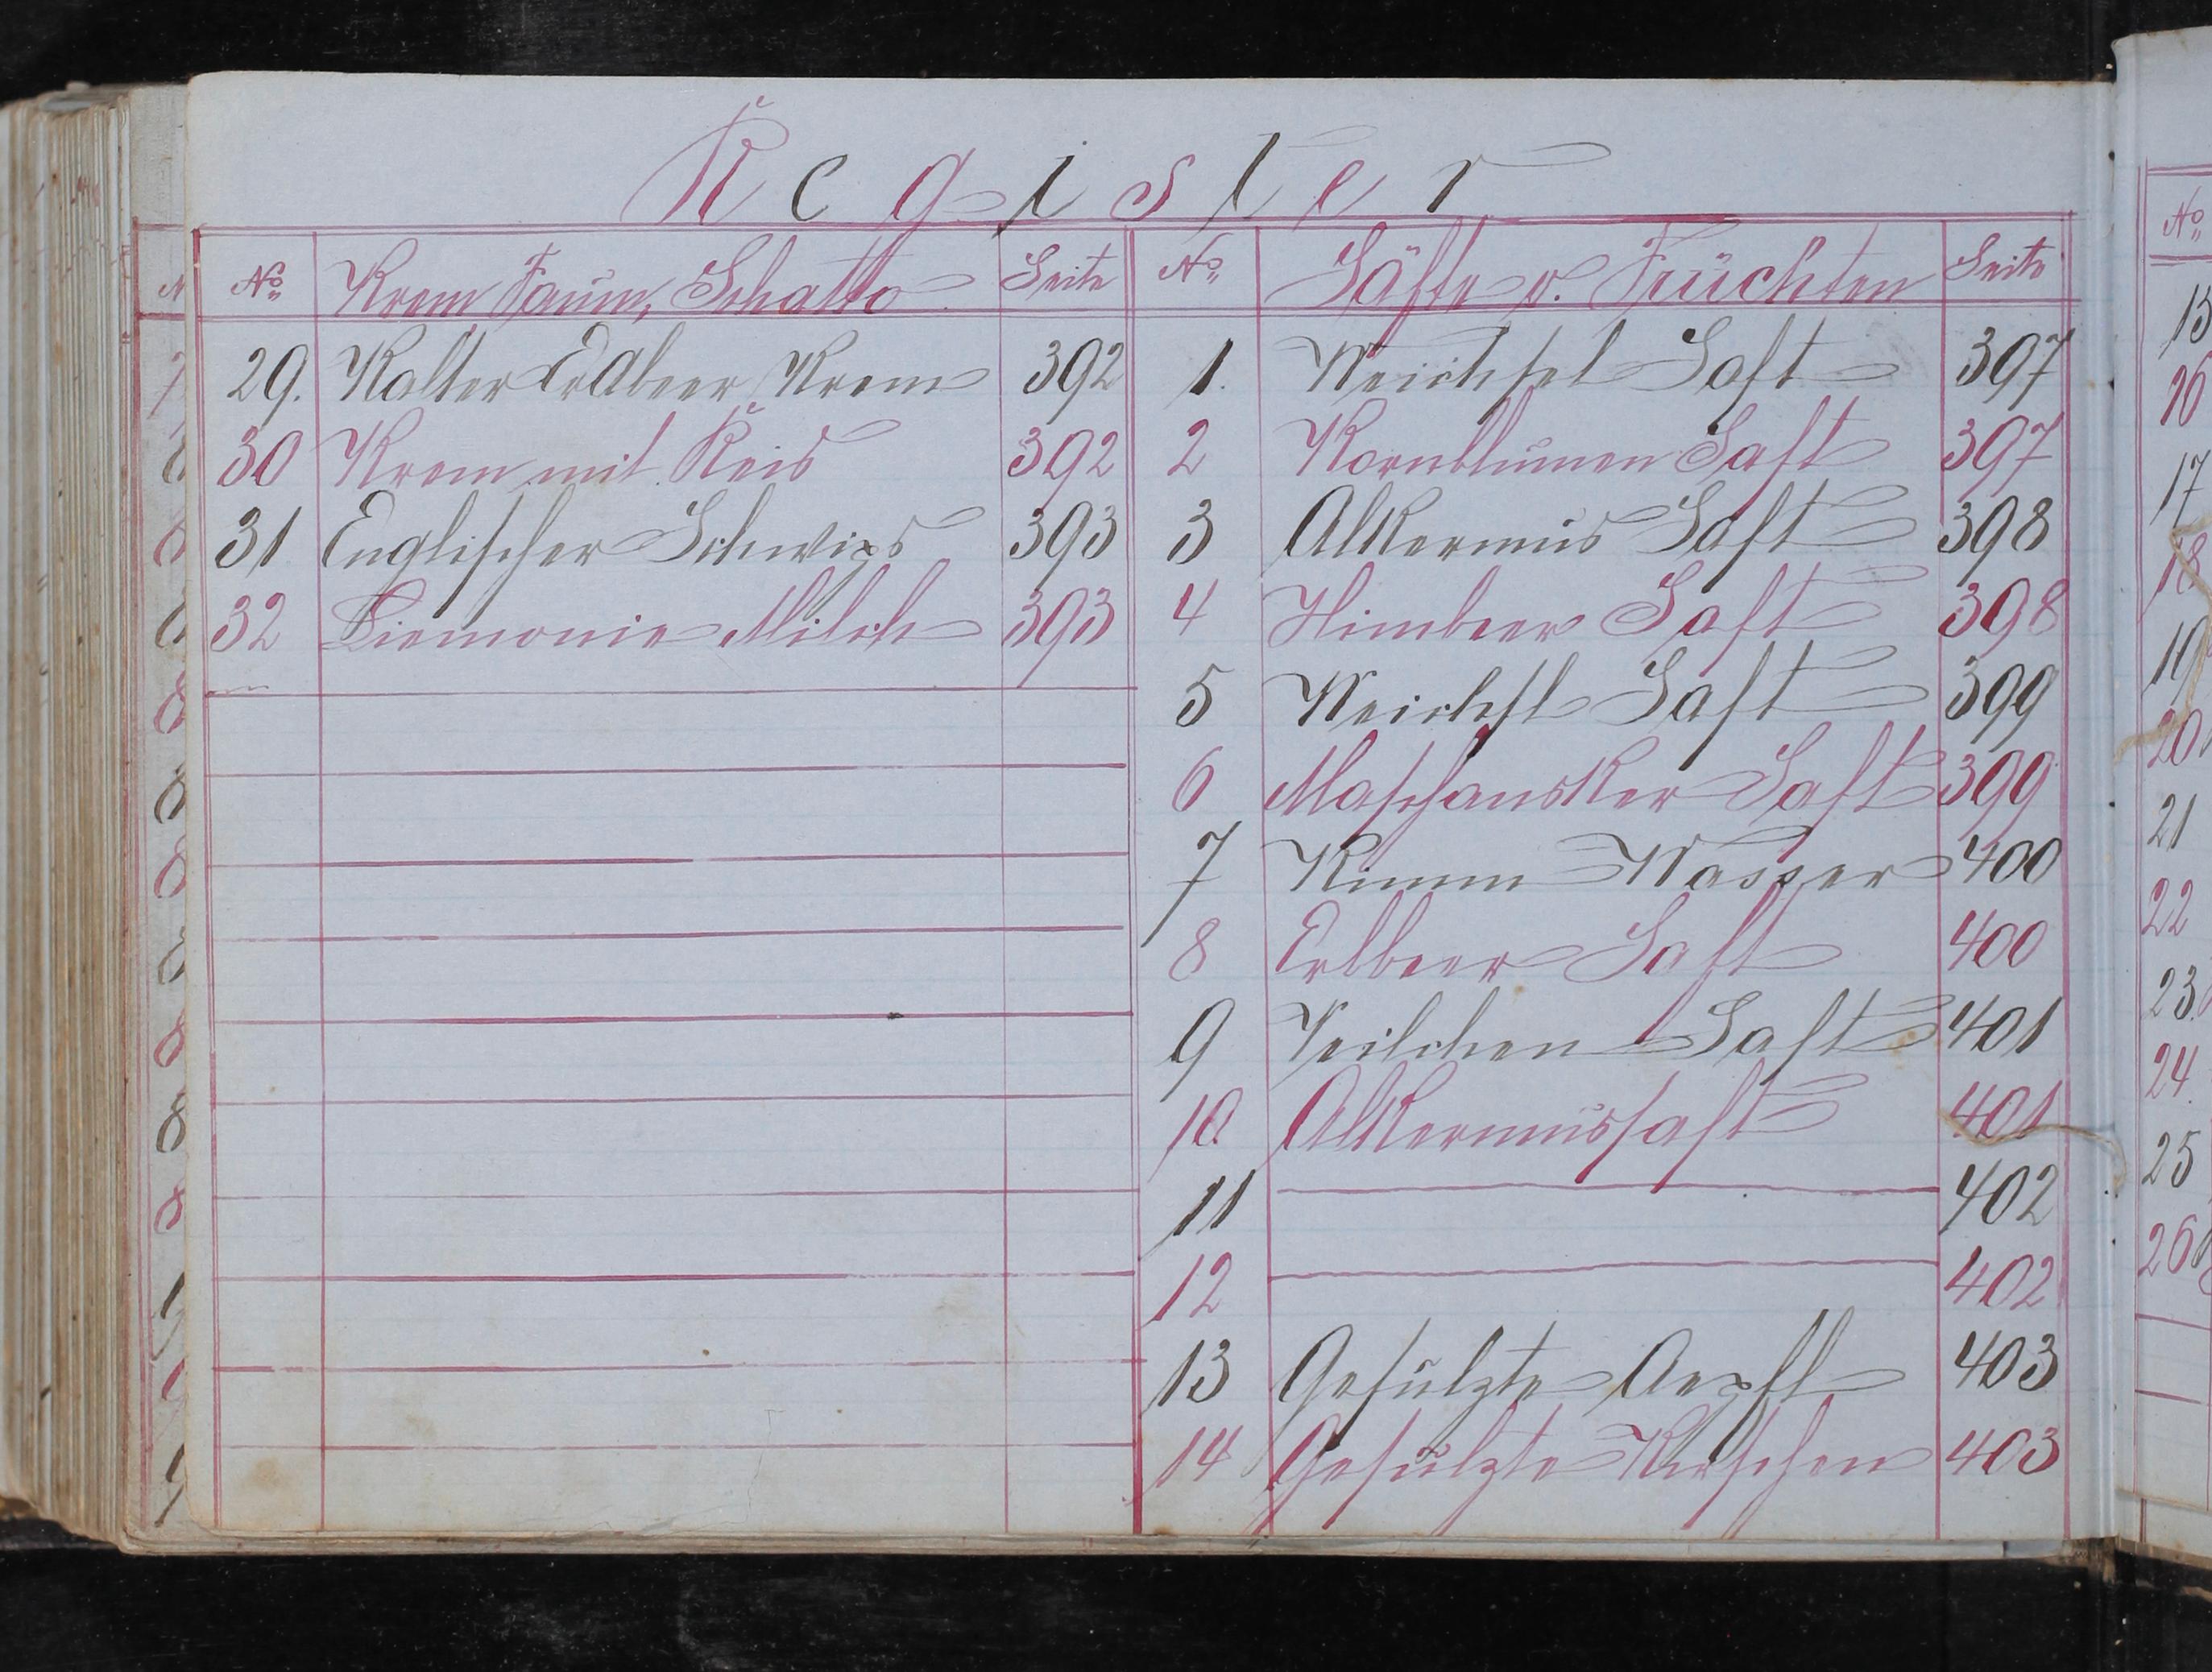 Register
No Krem Faum, Schatto Seite
29. Kalter Erdbeer Krem 392
30 Krem mit Reis 392
31 Englischer Schwips 393
32 Liemonie Milch 393
No Säfte v. Früchten Seite
1. Weichsel Saft 397
2 Kornblumen Saft 397
3 Alkermus Saft 398
4 Himbeer Saft 398
5 Weichsl Saft 399
6 Maschansker Saft 399
7 Kimm Wasser 400
8 Erlbeer Saft 400
9 Veilchen Saft 401
10 Alkermussaft 401
11 402
12 402
13 Gesulzte Aepfl 403
14 Gesulzte Kirschen 403
No
15
16
17
18
19
20
21
22
23.
24.
25
26